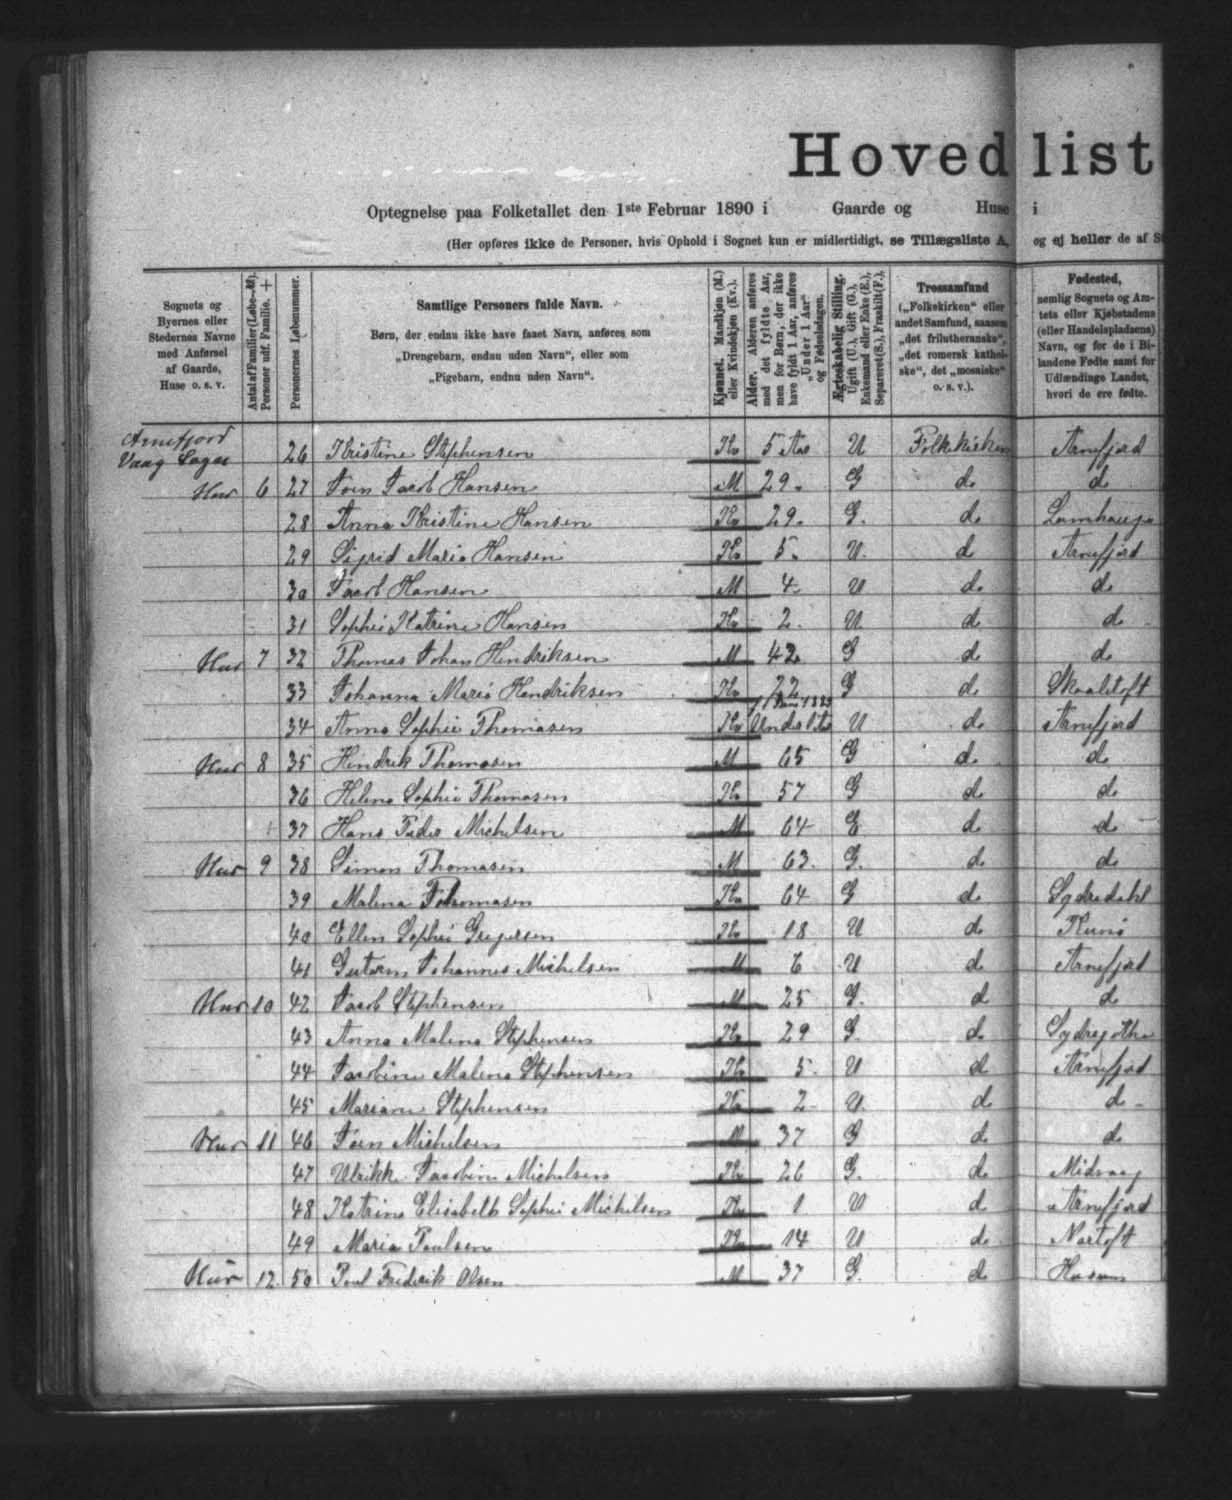 Hovedlist
Optegnelse paa Folketallet den 1ste Februar 1890 i Gaarde og Huse i
(Her opføres ikke de Personer, hvis Ophold i Sognet kun er midlertidigt, se Tillægsliste A, og ej heller de af S
Sognets og Byernes eller Stedernes Navne med Anførsel af Gaarde, Huse o. s. v.
Antal af Familier (Løbe-№). Personer udf. Familie. +
Personernes Løbenummer.
Samtlige Personers fulde Navn.
Børn, der endnu ikke have faaet Navn, anføres som
„Drengebarn, endnu uden Navn“, eller som
„Pigebarn, endnu uden Navn“.
Kjønnet. Mandkjøn (M.) eller Kvindekjøn (Kv.).
Alder. Alderen anføres med det fyldte Aar, men for Børn, der ikke have fyldt 1 Aar, anføres „Under 1 Aar“ og Fødselsdagen.
Ægteskabelig Stilling. Ugift (U.), Gift (G.), Enkemand eller Enke (E.), Separeret (S.), Fraskilt (F.).
Trossamfund („Folkekirken“ eller andet Samfund, saasom „det frilutheranske“, „det romersk katholske“, det „mosaiske“ o. s. v.).
Fødested, nemlig Sognets og Amtets eller Kjøbstadens (eller Handelspladsens) Navn, og for de i Bilandene Fødte samt for Udlændinge Landet, hvori de ere fødte.
Arnefjord
Vaag Sogn 26 Kristine Stephensen Kv 5 Aar U Folkekirken Arnefjord
Hus 6 27 Joen Jacob Hansen M 29. G d. d.
28 Anna Kristine Hansen Kv 29. G. d. Lamhauge
29 Sigrid Maria Hansen Kv 5. U. d Arnefjord
30 Jacob Hansen M 4 U d. d.
31 Sophie Katrine Hansen Kv 2. U d. d.
Hus 7 32 Thomas Johan Hendriksen M 42 G d. d.
33 Johanna Maria Hendriksen Kv 22 G d. Skaaletoft
34 Anna Sophie Thomasen Kv U d. Arnefjord
Hus 8 35 Hendrik Thomasen M 65 G d. d.
36 Helena Sophie Thomasen Kv 57 G d. d.
+ 37 Hans Peder Michelsen M 64 E d. d.
Hus 9 38 Simon Thomasen M 63. G. d. d.
39 Malena Thomasen Kv 64 G d. Sydredahl
40 Ellen Sophie Gregersen Kv 18 U d. Kunø
41 Guttorm Johannes Michelsen M 6 U d. Arnefjord
Hus 10 42 Jacob Stephensen M 25 G. d d
43 Anna Malena Stephensen Kv 29 G. d. Sydregøthe
44 Jacobine Malena Stephensen Kv 5. U d Arnefjord
45 Mariane Stephensen Kv 2 U. d d.
Hus 11 46 Joen Michelsen M 37 G d. d.
47 Ulrikke Jacobine Michelsen Kv 26 G. d. Midvaag
48 Katrine Elisabeth Sophie Michelsen Kv 1 U d Arnefjord
49 Maria Poulsen Kv 14 U d. Nortoft
Hus 12 50 Poul Frederik Olsen M 37 G. d. Husum